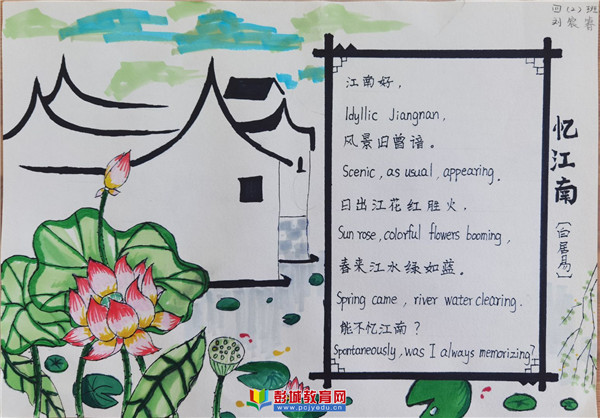 四（2）班
刘宸睿
忆江南
［白居易］
江南好，
Idyllic Jiangnan,
风景旧曾谙。
Scenic, as usual, appearing.
日出江花红胜火，
Sun rose, colorful flowers booming,
春来江水绿如蓝。
Spring came, river water clearing.
能不忆江南？
Spontaneously, was I always memorizing?
彭城教育网
www.pcjyedu.cn